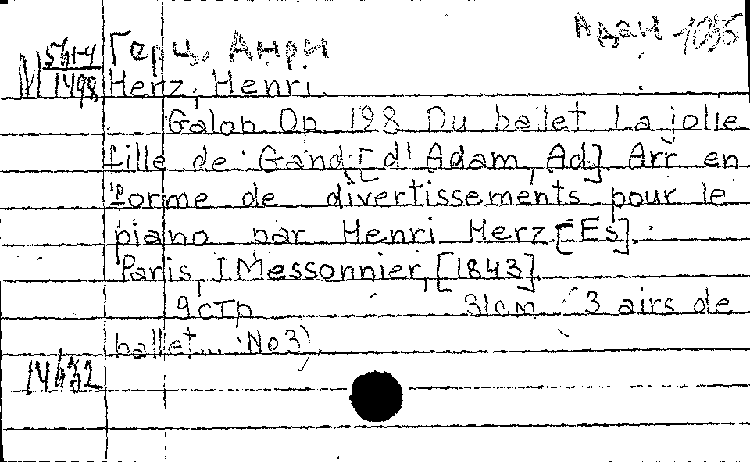 Адан
М 561-4 Герц, Анри
1498 Herz, Henri.
Galop Op 128 Du balet La jolle
fille de Gand, [d'Adam, Ad] Arr en
forme de divertissements pour le
piano par Henri Herz. [Es].
Paris, J. Messonnier, [1843].
9 стр 31 см (3 airs de
ballet... No 3)